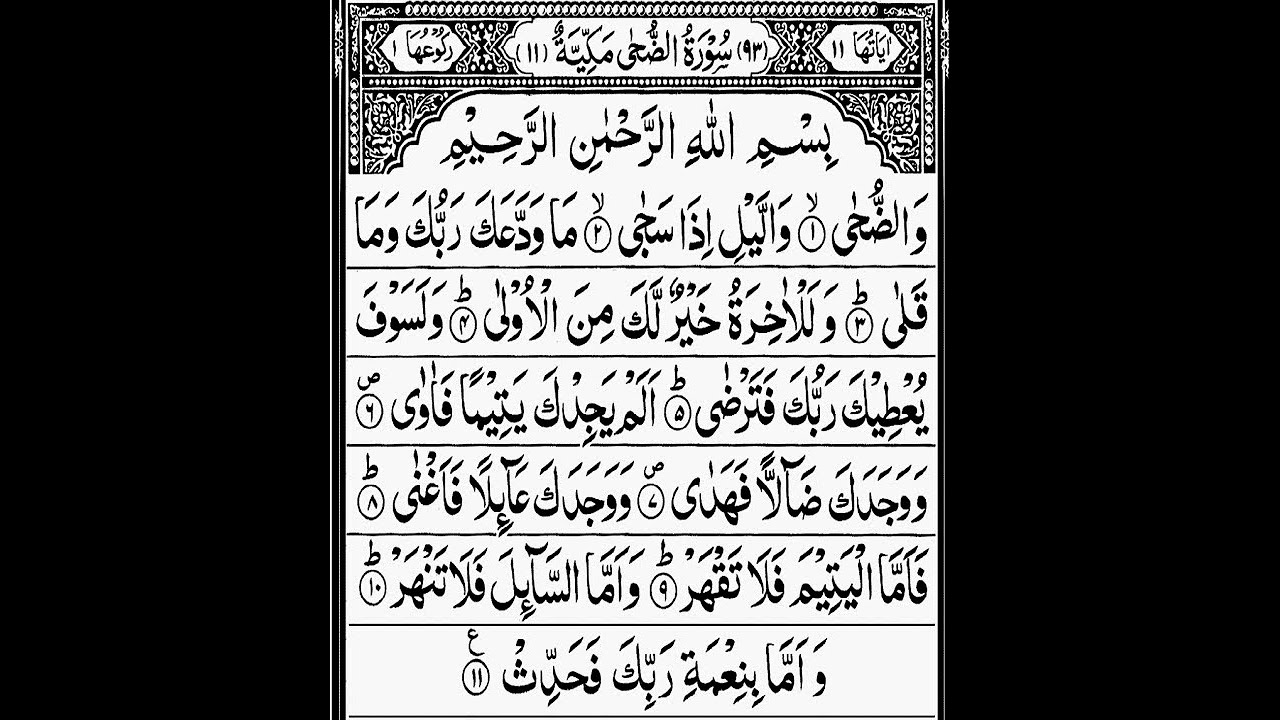 اٰيَاتُهَا ١١ (٩٣) سُوْرَةُ الضُّحٰى مَكِّيَّةٌ (١١) رُكُوْعُهَا ١
بِسْمِ اللّٰهِ الرَّحْمٰنِ الرَّحِيْمِ
وَالضُّحٰى ۙ﴿١﴾ وَالَّيْلِ اِذَا سَجٰى ۙ﴿٢﴾ مَا وَدَّعَكَ رَبُّكَ وَمَا
قَلٰى ؕ﴿٣﴾ وَلَلْاٰخِرَةُ خَيْرٌ لَّكَ مِنَ الْاُوْلٰى ؕ﴿٤﴾ وَلَسَوْفَ
يُعْطِيْكَ رَبُّكَ فَتَرْضٰى ؕ﴿٥﴾ اَلَمْ يَجِدْكَ يَتِيْمًا فَاٰوٰى ۪﴿٦﴾
وَوَجَدَكَ ضَآلًّا فَهَدٰى ۪﴿٧﴾ وَوَجَدَكَ عَآئِلًا فَاَغْنٰى ؕ﴿٨﴾
فَاَمَّا الْيَتِيْمَ فَلَا تَقْهَرْ ؕ﴿٩﴾ وَاَمَّا السَّآئِلَ فَلَا تَنْهَرْ ؕ﴿١٠﴾
وَاَمَّا بِنِعْمَةِ رَبِّكَ فَحَدِّثْ ﴿١١﴾ ع